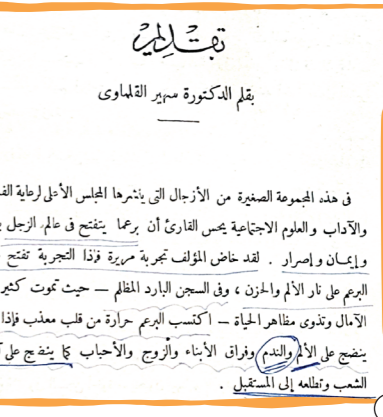 تقديم
بقلم الدكتورة سهير القلماوى
فى هذه المجموعة الصغيرة من الأزجال التى ينشرها المجلس الأعلى لرعاية
والآداب والعلوم الاجتماعية يحس القارئ أن برعما يتفتح فى عالم الزجل
وإيمان وإصرار . لقد خاض المؤلف تجربة مريرة فإذا التجربة تفتح
البرعم على نار الألم والحزن ، وفى السجن البارد المظلم – حيث تموت كثير
الآمال وتذوى مظاهر الحياة – اكتسب البرعم حرارة من قلب معذب فإذا
ينضج على الألم والندم وفراق الأبناء والزوج والأحباب كما ينضج على
الشعب وتطلعه إلى المستقبل .